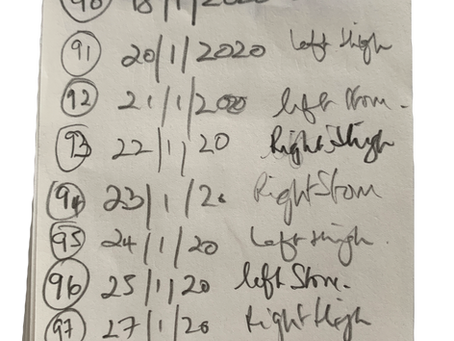 90 18/1/2020
91 20/1/2020 left thigh
92 21/1/2020 left Stom.
93 22/1/20 Right Thigh
94 23/1/20 Right Stom
95 24/1/20 Left thigh
96 25/1/20 left Stom.
97 27/1/20 Right thigh